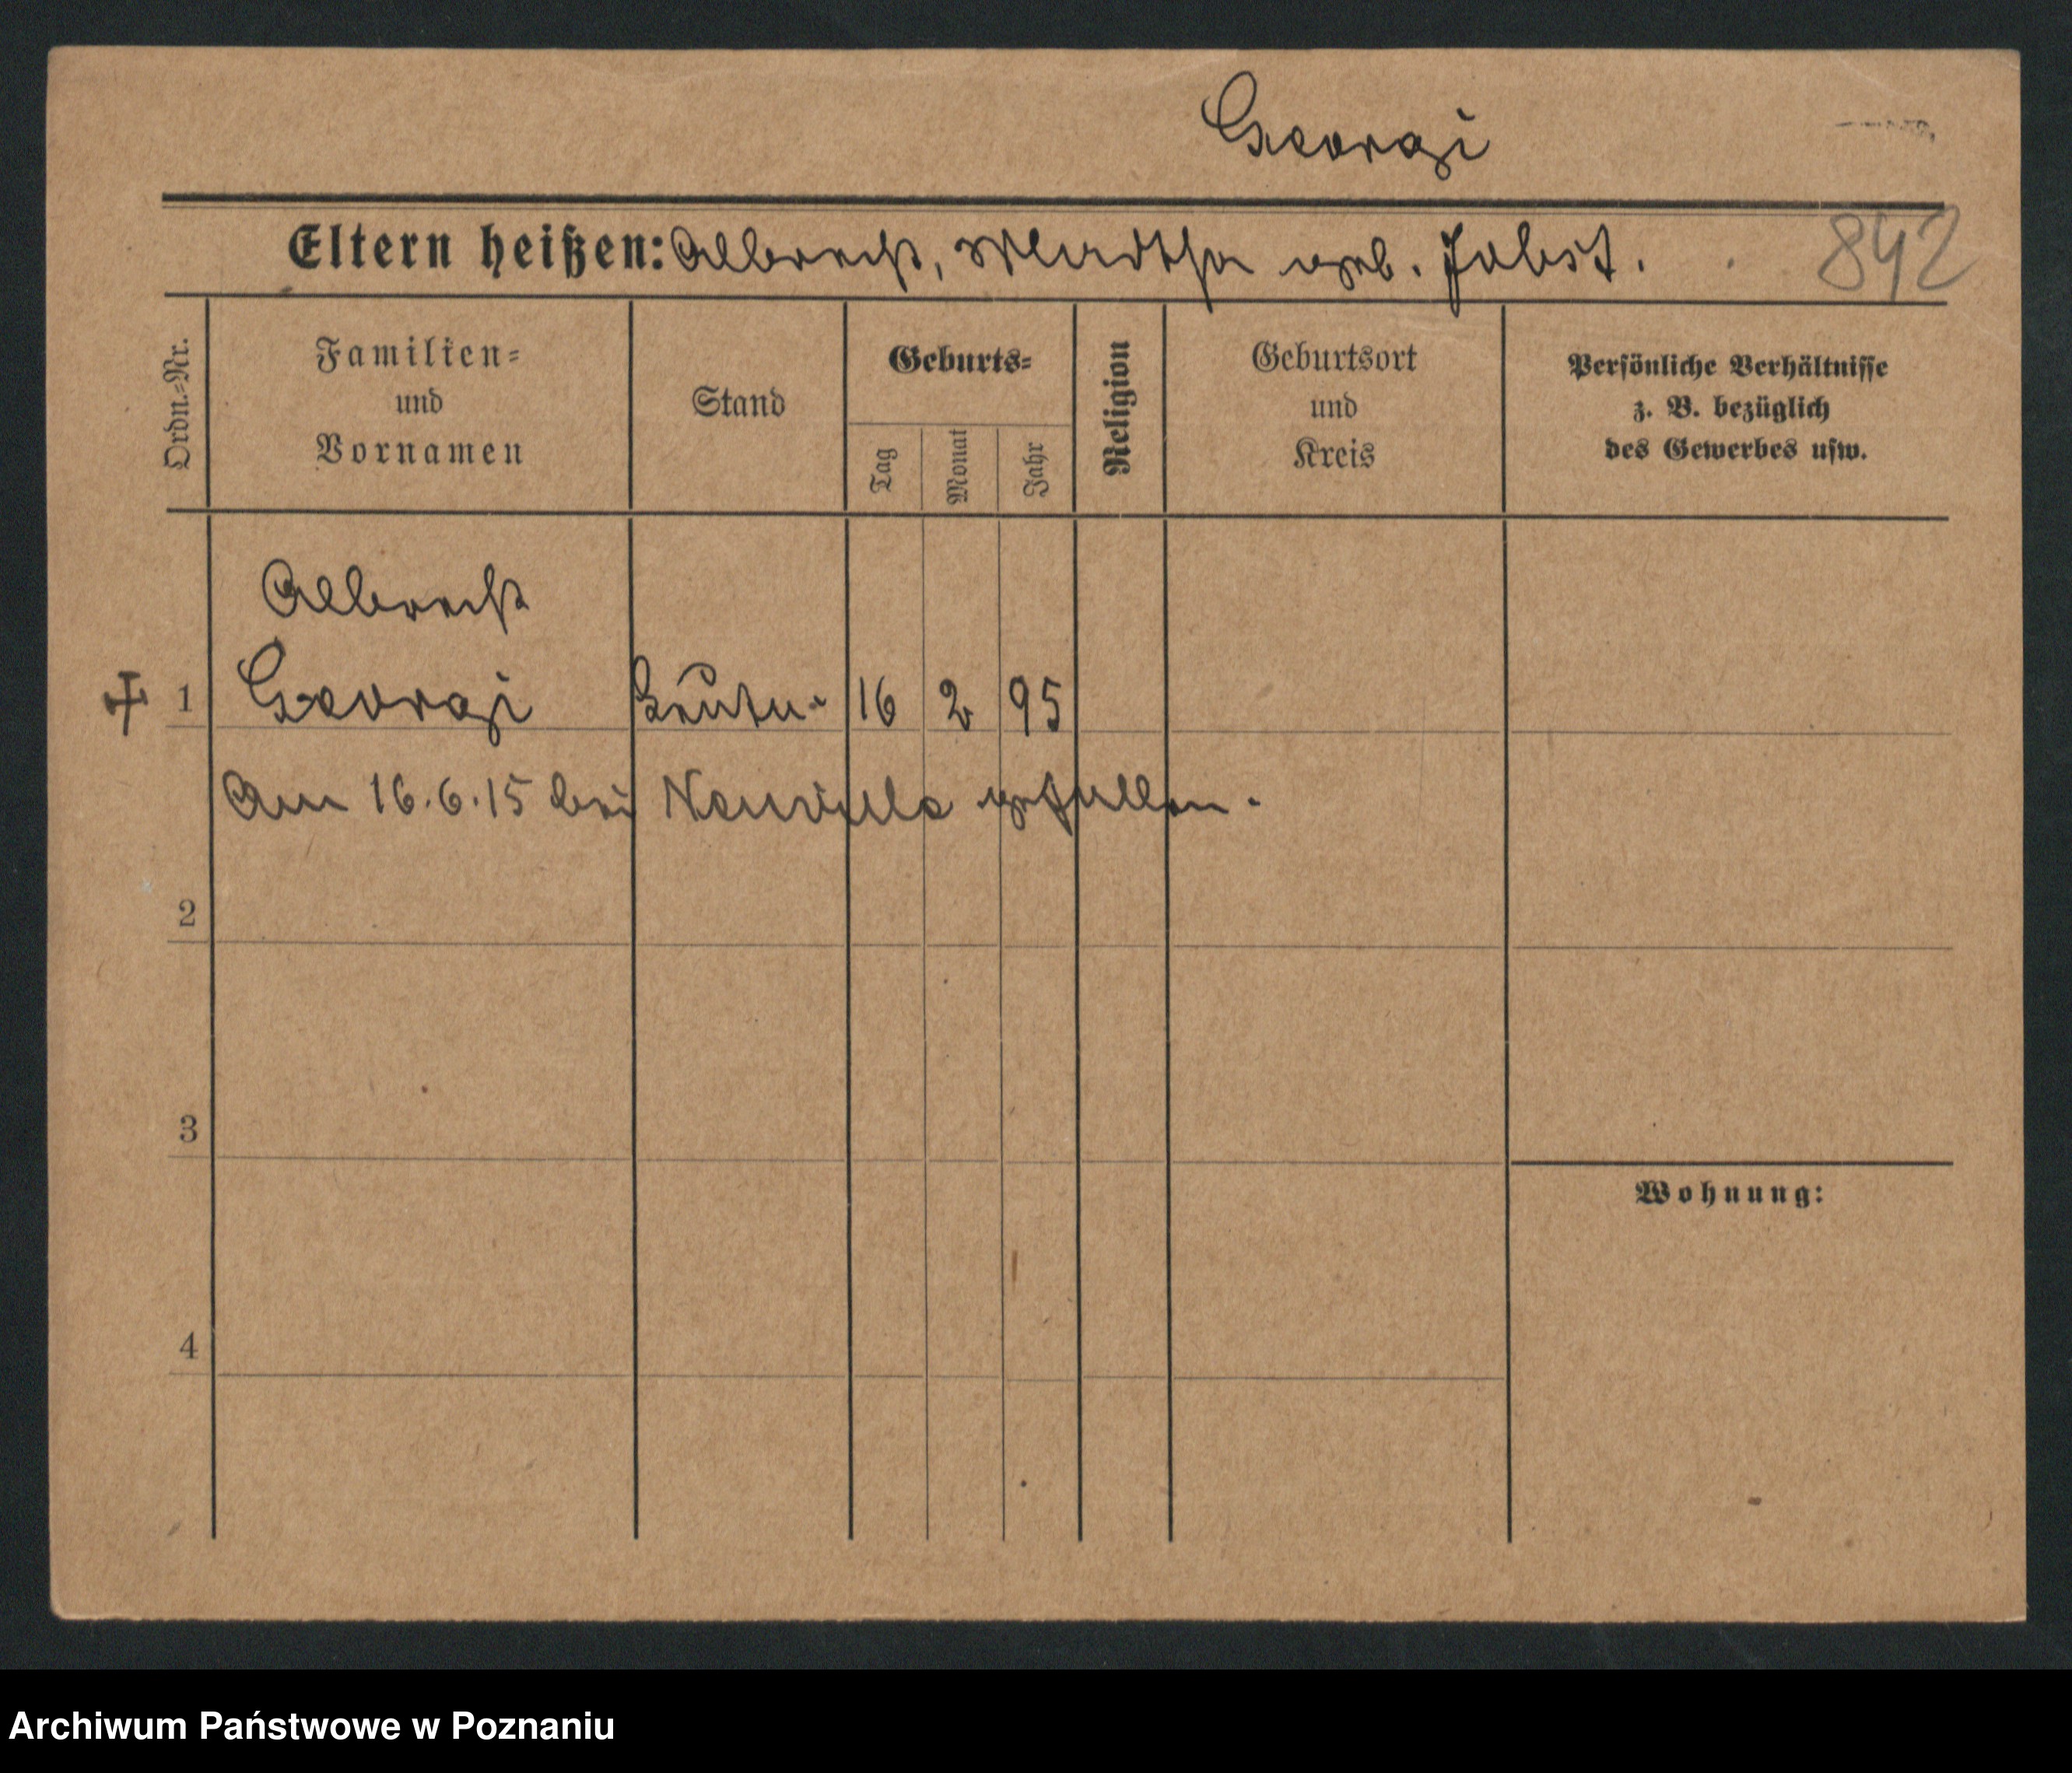 Georgi
Eltern heißen: Albrecht, Martha geb. Jabst.
842
Ordn.-Nr.
Familien-
und
Vornamen
Stand
Geburts-
Tag
Monat
Jahr
Religion
Geburtsort
und
Kreis
Persönliche Verhältnisse
z. B. bezüglich
des Gewerbes usw.
Albrecht
1 Georgi Leutn. 16 2 95
Am 16.6.15 bei Neuville gefallen.
2
3
Wohnung:
4
Archiwum Państwowe w Poznaniu